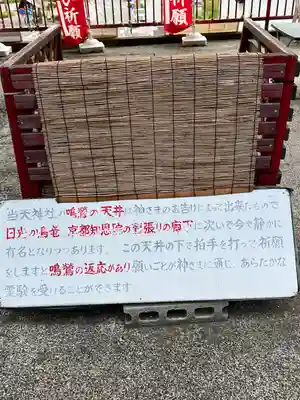 祈願
祈願
当天神社の鳴鶯の天井は神さまのお告げによって出来たもので
日光の鳴竜、京都知恩院の鶯張りの廊下に次いで今で静かに
有名となりつつあります。この天井の下で拍手を打って祈願
をしますと鳴鶯の返応があり願いごとが神さまに通じ、あらたかな
霊験を受けることができます